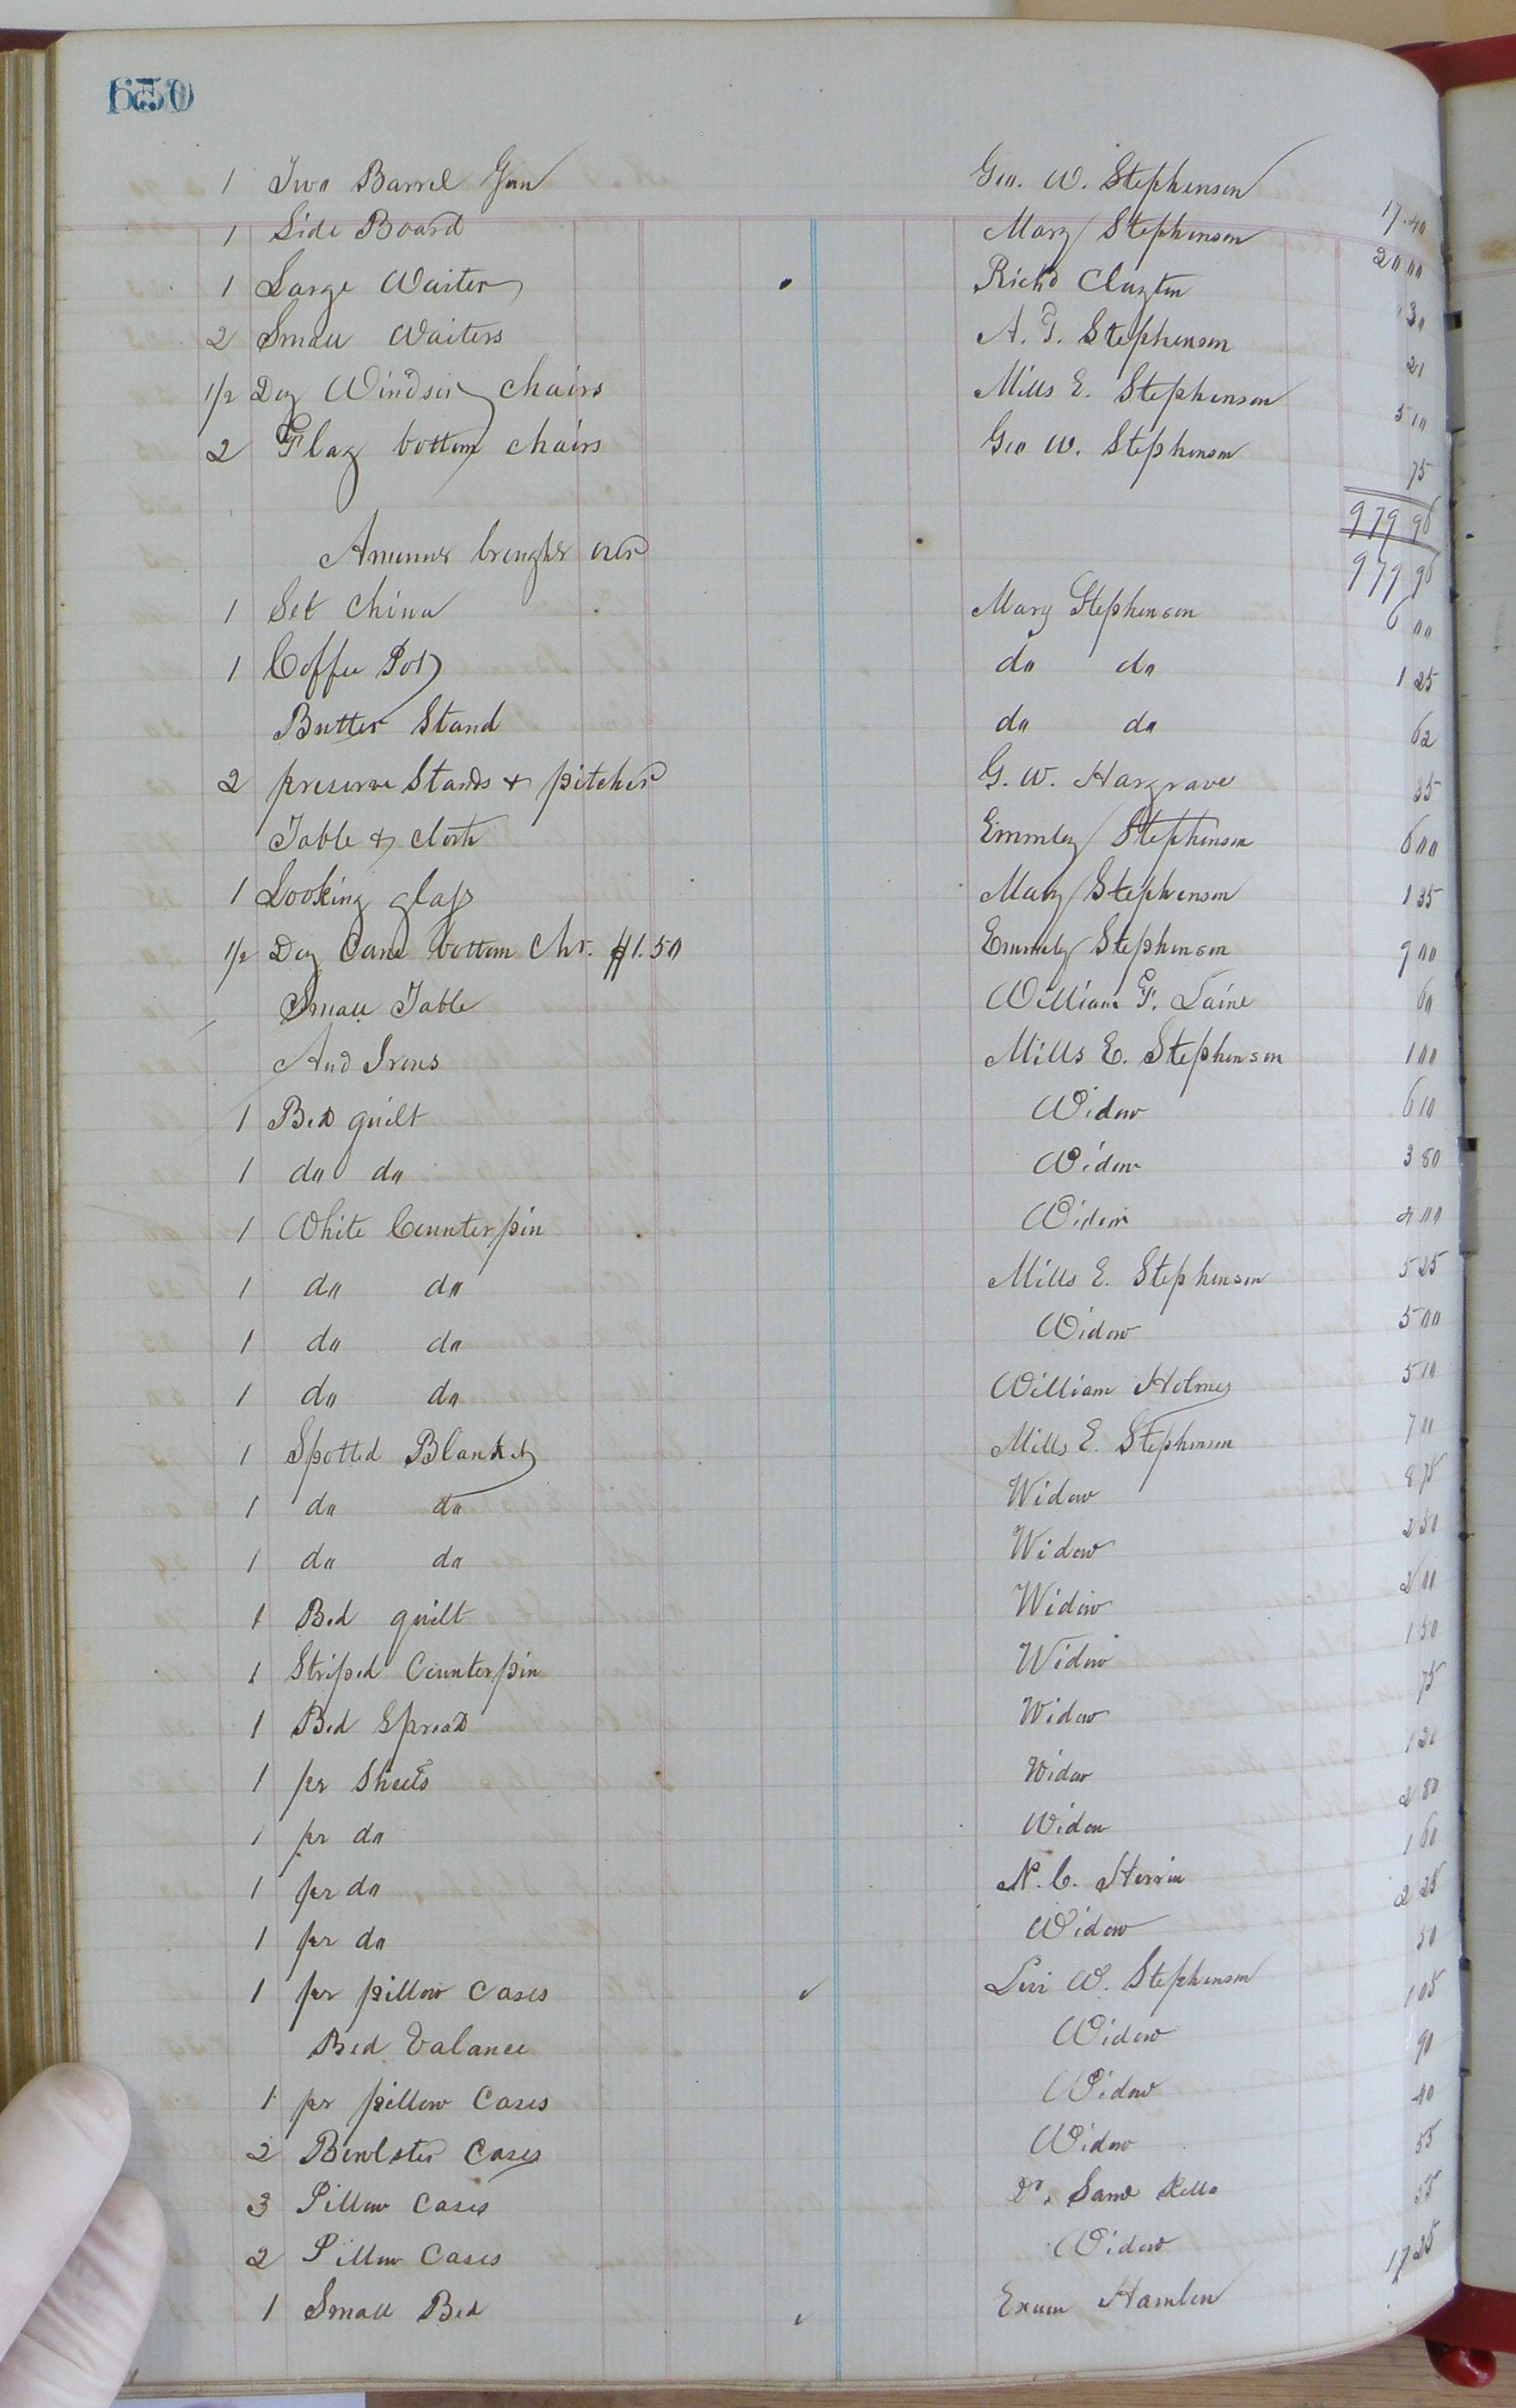 650
1 Two Barrel Gun Geo. W. Stephenson 17.40
1 Side Board Mary Stephenson 20 00
1 Large Waiter Richd Clayton 30
2 Small Waiters A. T. Stephenson 21
1/2 Doz Windsir chairs Mills E. Stephenson 5 10
2 Flag bottom chairs Geo W. Stephenson 75
979 96
Amount brought over 979 96
1 Set China Mary Stephenson 6 00
1 Coffee Pot do do 1 25
Butter Stand do do 62
2 preserve Stands & pitcher G. W. Hargrave 35
Table & cloth Emmley Stephenson 6 00
1 Looking glass Mary Stephenson 1 35
1/2 Doz Cane bottom Chr. $1.50 Emmely Stephenson 9 00
Small Table William F. Laine 60
And Irons Mills E. Stephenson 1 00
1 Bed quilt Widow 6 10
1 do do Widow 3 80
1 White Counterpin Widow 4 00
1 do do Mills E. Stephenson 5 25
1 do do Widow 5 00
1 do do William Holmes 5 10
1 Spotted Blanket Mills E. Stephenson 7 11
1 do do Widow 8 75
1 do do Widow 2 50
1 Bed quilt Widow 2 11
1 Striped Counterpin Widow 1 50
1 Bed Spread Widow 75
1 pr Sheets Widow 1 20
1 pr do Widow 2 80
1 pr do N. C. Herrin 1 60
1 pr do Widow 2 25
1 pr pillow Cases Levi W. Stephenson 50
Bed Valance Widow 1 05
1 pr pillow Cases Widow 90
2 Bowlster Cases Widow 40
3 Pillow Cases Dr. Saml Kello 55
2 Pillow Cases Widow 55
1 Small Bed Exum Hamlin 17 25